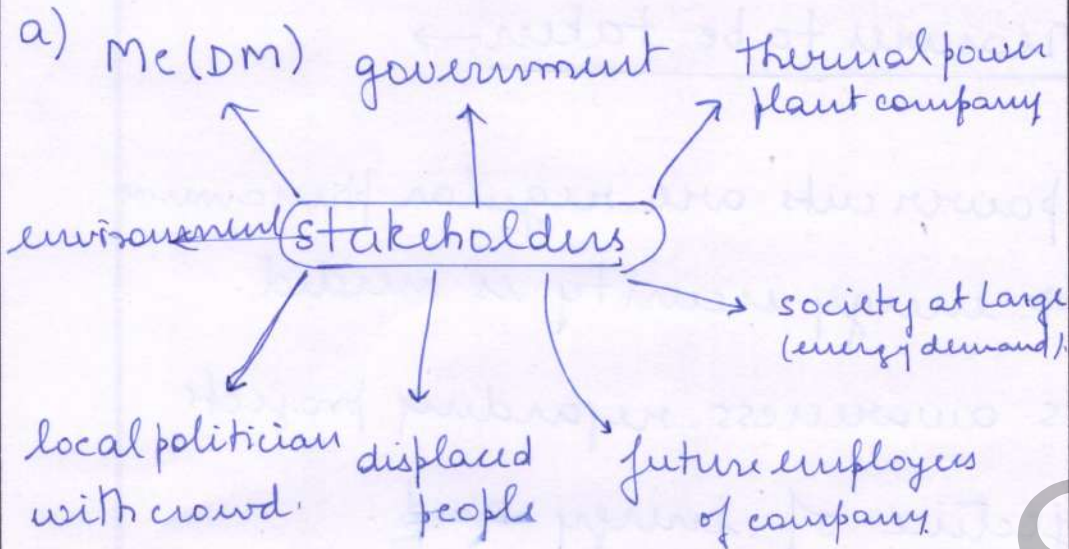 a) Me (DM) government thermal power
plant company
environment stakeholders
society at large
(energy demand).
local politician displaced future employees
with crowd. people of company.